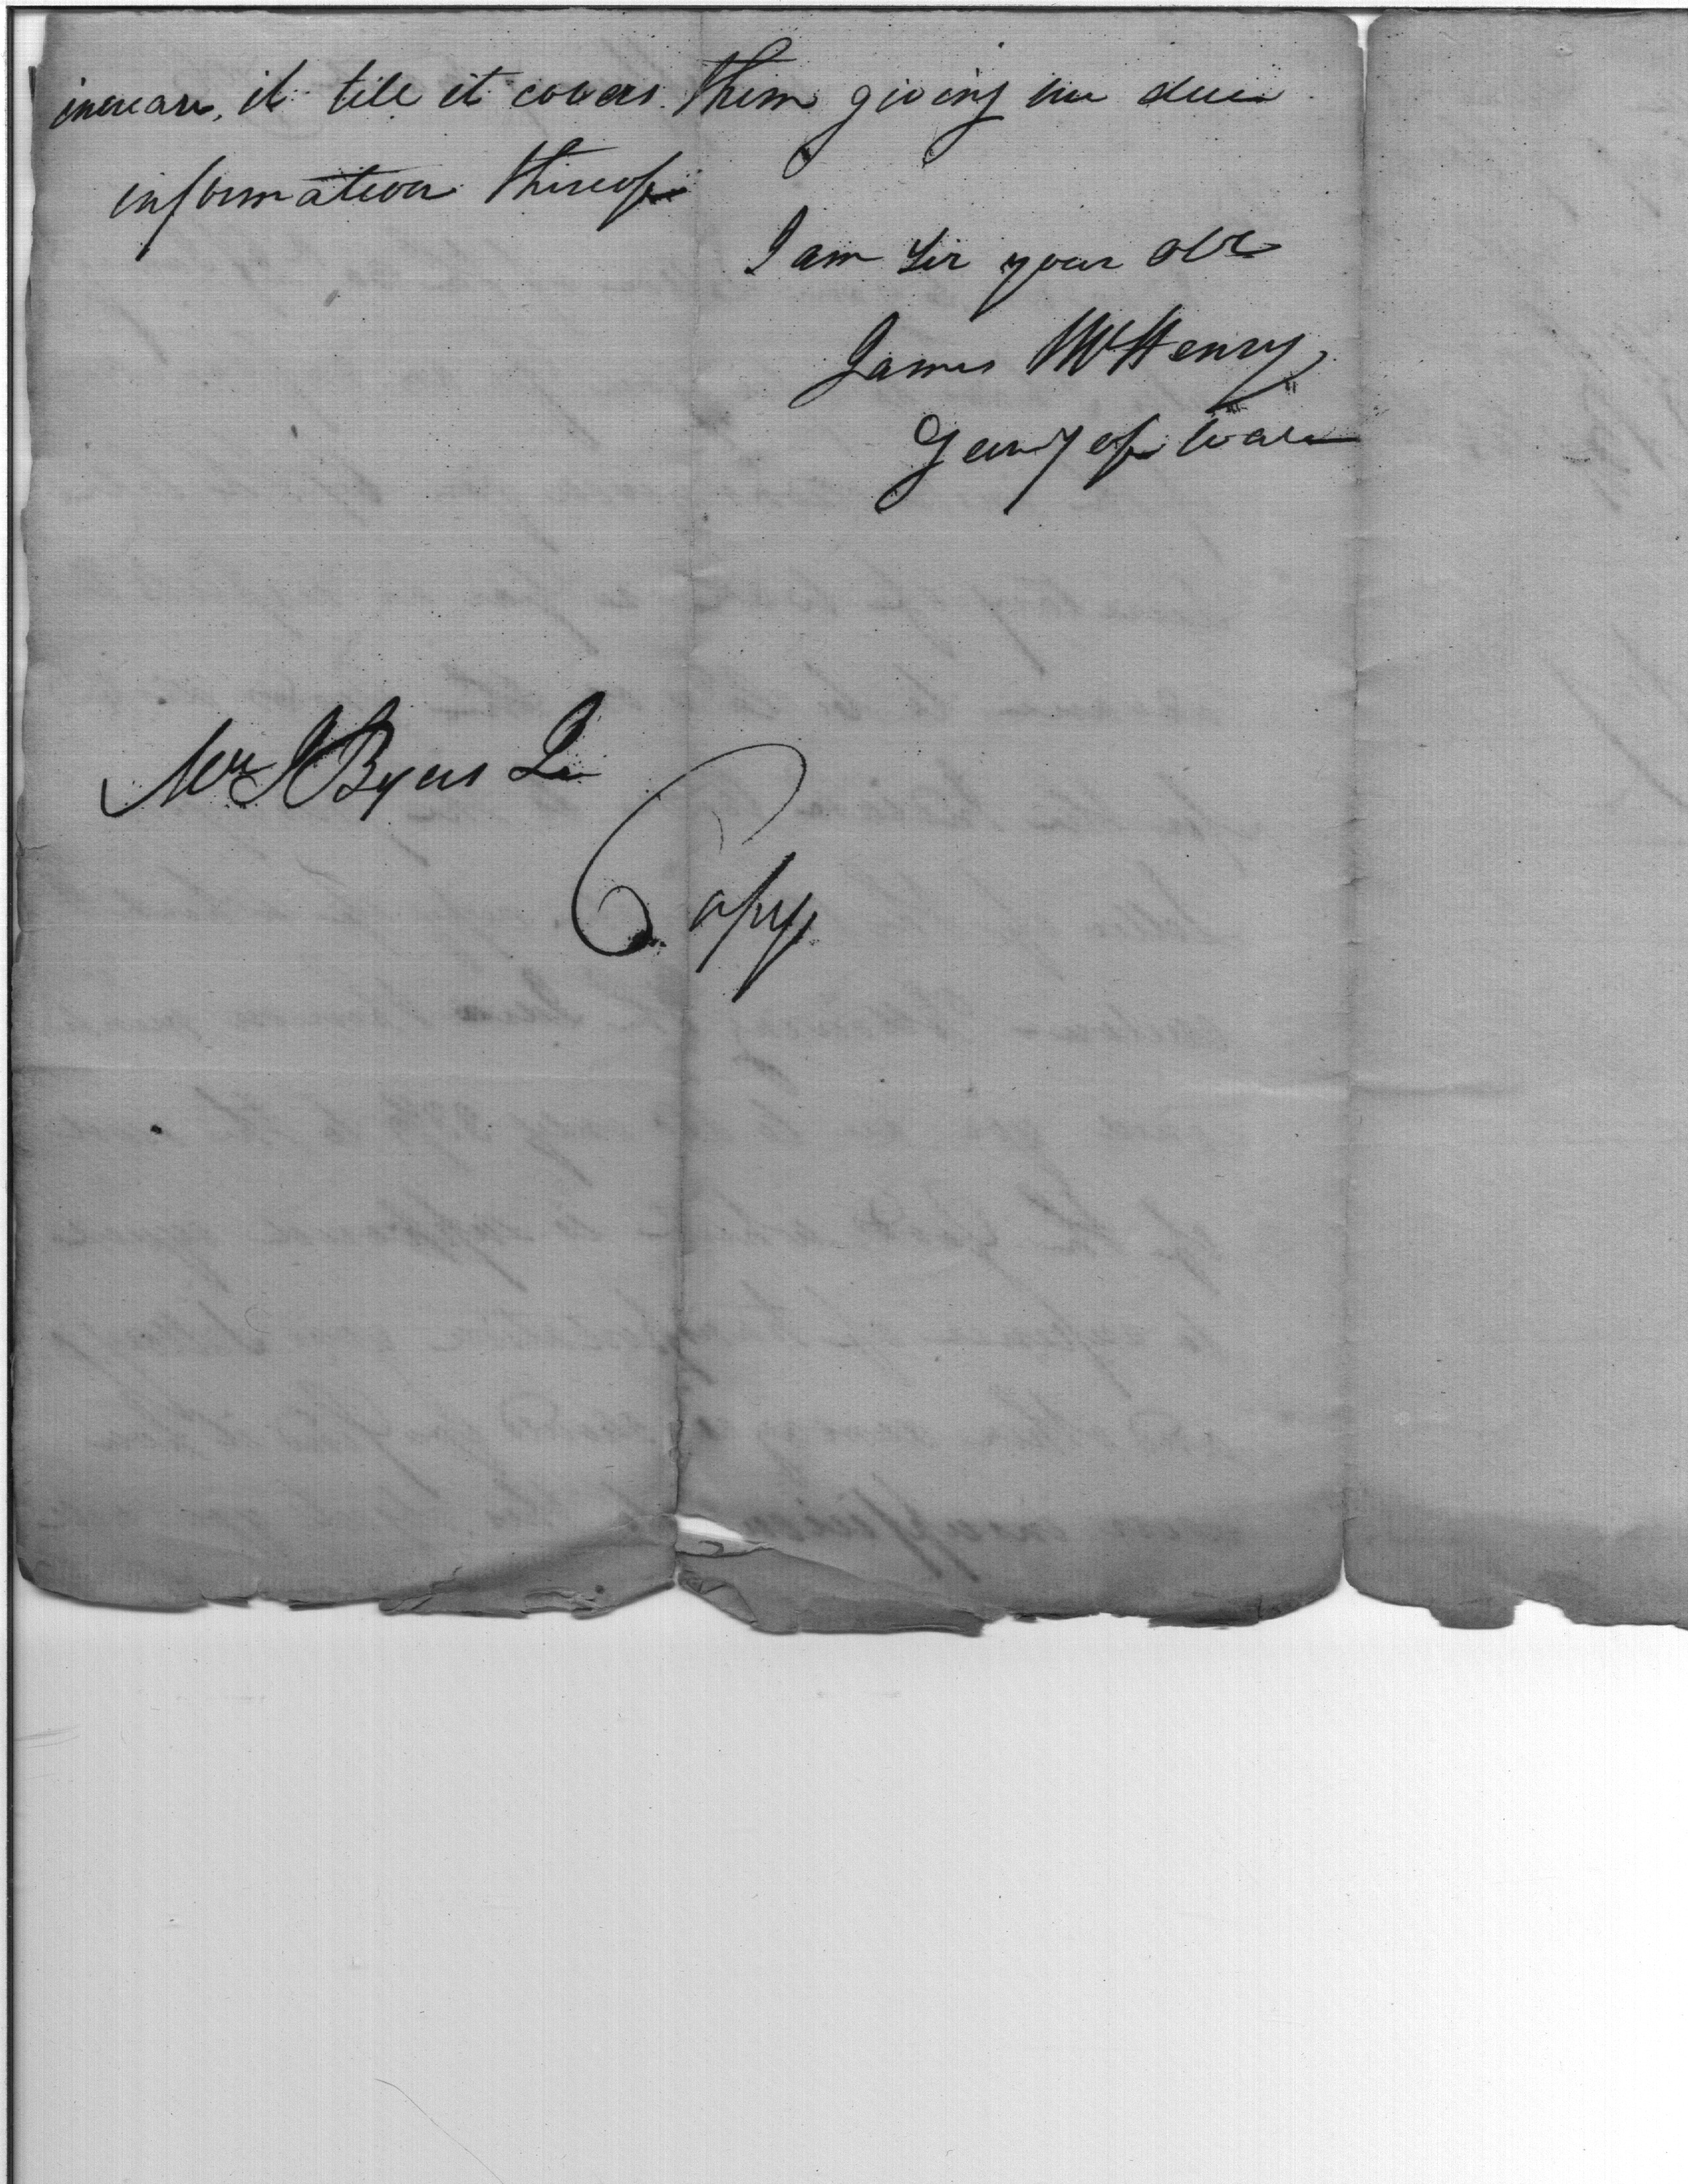 increase, it till it covers them giving me due
information thereof
I am Sir your obt
James McHenry
Secry of War
Mr J Byers
Copy